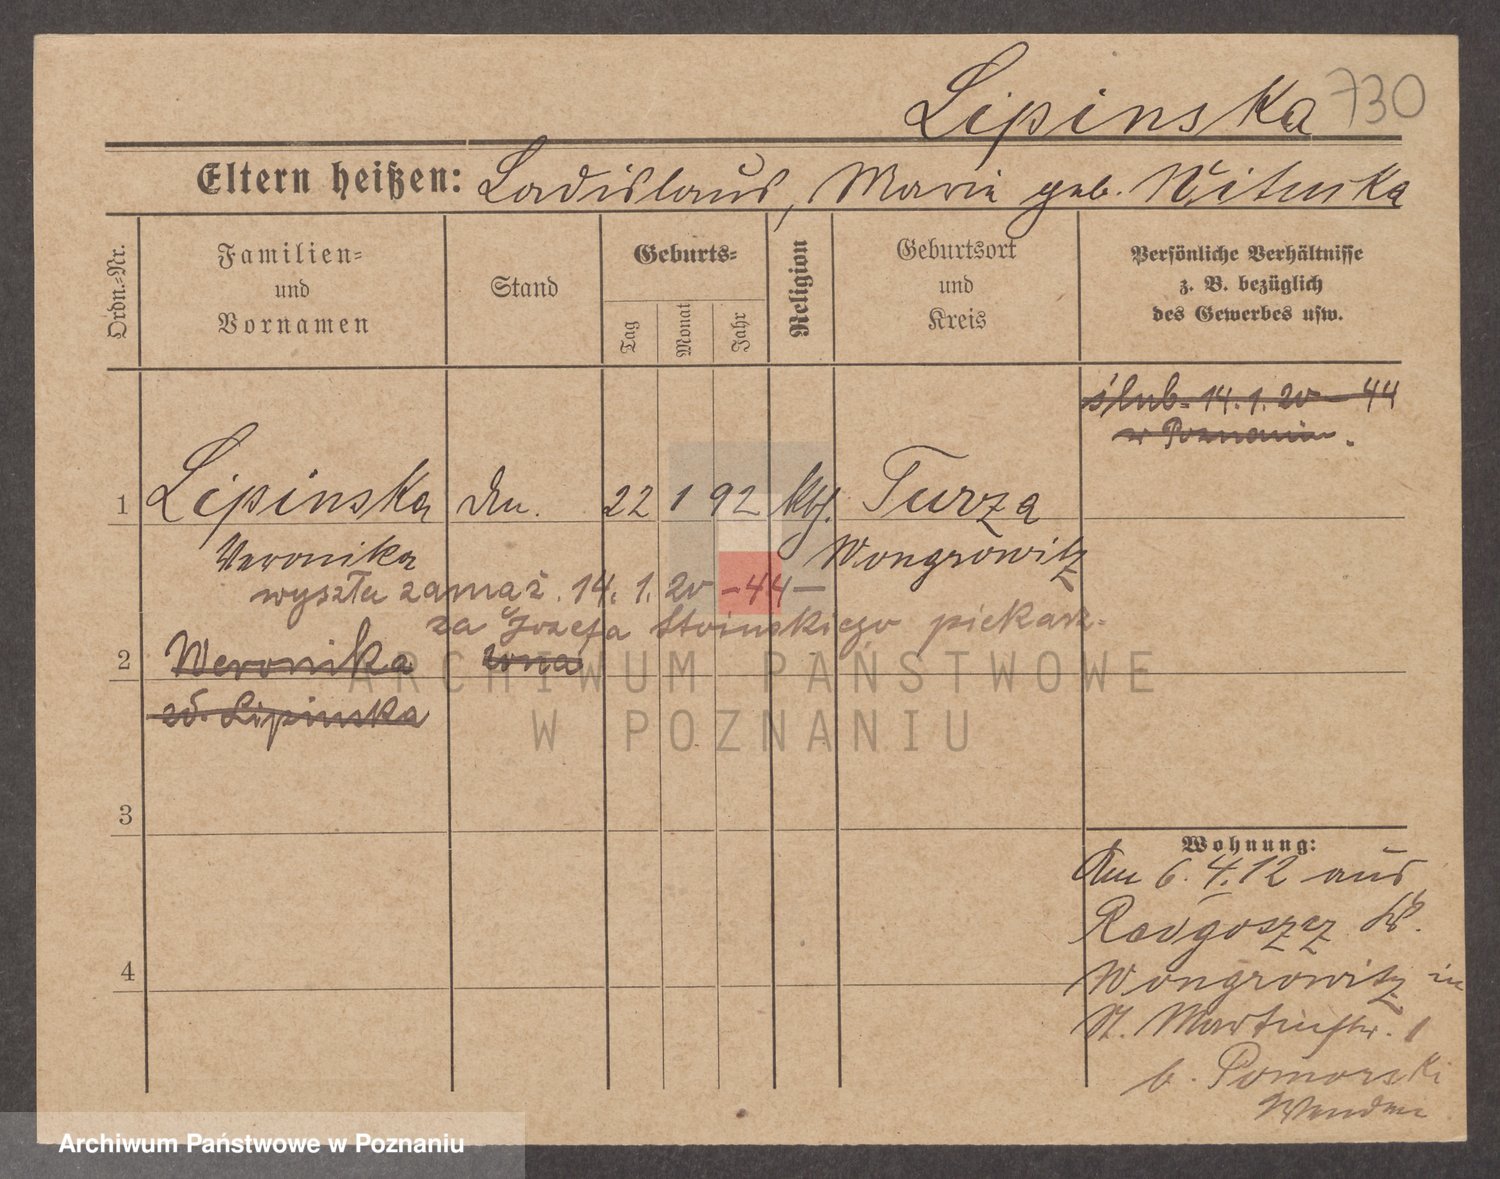 Lipinska 730
Eltern heißen: Ladislaus, Marie geb. Wituska
Ordn.=Nr.
Familien=
und
Vornamen
Stand
Geburts=
Tag
Monat
Jahr
Religion
Geburtsort
und
Kreis
Persönliche Verhältnisse
z. B. bezüglich
des Gewerbes usw.
ślub. 14.1.20 - 44
w Poznaniu.
1 Lipinska 22 1 92 kth. Turza
Veronika Wongrowitz
wyszła zamąż. 14. 1. 20 - 44 -
za Józefa Stoinskiego piekarz.
2 Weronika żona
Lipinska
3
4
Wohnung:
Am 6.4.12 aus
Redgoszcz Kr.
Wongrowitz in
St. Martinstr. 1
b. Pomorski
ARCHIWUM PAŃSTWOWE
W POZNANIU
Archiwum Państwowe w Poznaniu